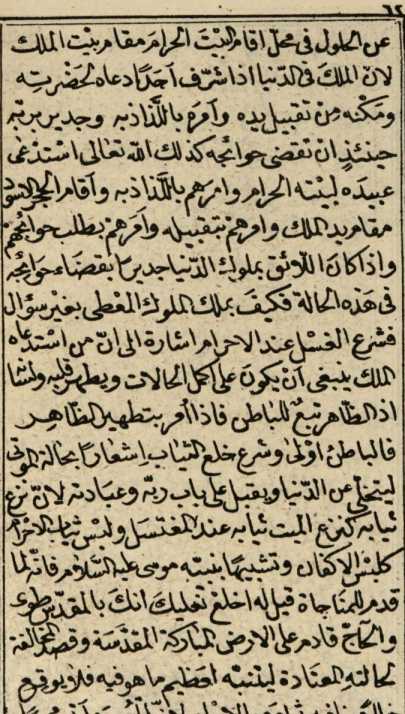 ٦٢
عن الحلول في محلّ اقام البيت الحرام مقام بيت الملك
لانّ الملك في الدّنيا اذا شرّف احدًا دعاه لحضرته
ومكّنه من تقبيل يده وأمره باللّذاذ به وجدير بربّه
حينئذٍ ان تقضى حوائجه كذلك الله تعالى استدعى
عبيده لبيته الحرام وامرهم باللّذاذ به وأقام الحجر الاسود
مقام يد الملك وامرهم بتقبيله وأمرهم بطلب حوائجهم
واذا كان اللّائق بملوك الدّنيا جديرًا بقضاء حوائجه
في هذه الحالة فكيف بملك الملوك المعطى بغير سؤال
فشرع الغسل عند الاحرام اشارة الى انّ من استدعاه
الملك ينبغي أن يكون على اكمل الحالات ويطهر قلبه ولمشا
اذ الظّاهر تبع للباطن فاذا أمر بتطهير الظّاهر
فالباطن اولى وشرع خلع الثياب اشعارًا بحالة الموتى
ليتخلّى عن الدّنيا ويقبل على باب ربّه وعبادته لانّ نزع
ثيابه كنزع الميت ثيابه عند المغتسل ولبس ثياب الاحرام
كلبس الاكفان وتشبيهًا بنبيّه موسى عليه السّلام فانّه لما
قدم للمناجاة قيل له اخلع نعليك انّك بالمقدّس طوى
والحاجّ قادم على الارض المباركة المقدّسة وقصد المخالفة
لحالته المعتادة ليتنبّه لعظيم ما هو فيه فلا يوقع